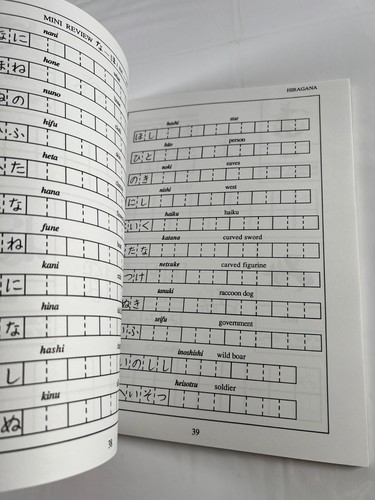 MINI REVIEW な
nani
に
hone
ね
nuno
の
hifu
ふ
heta
た
hana
な
fune
ね
kani
に
hina
な
hashi
し
kinu
ぬ
38
HIRAGANA
hoshi star
ほし
hito person
ひと
noki eaves
のき
nishi west
にし
haiku haiku
いく
katana curved sword
たな
netsuke carved figurine
つけ
tanuki raccoon dog
ぬき
seifu government
ふ
inoshishi wild boar
いのしし
heisotsu soldier
へいそつ
39